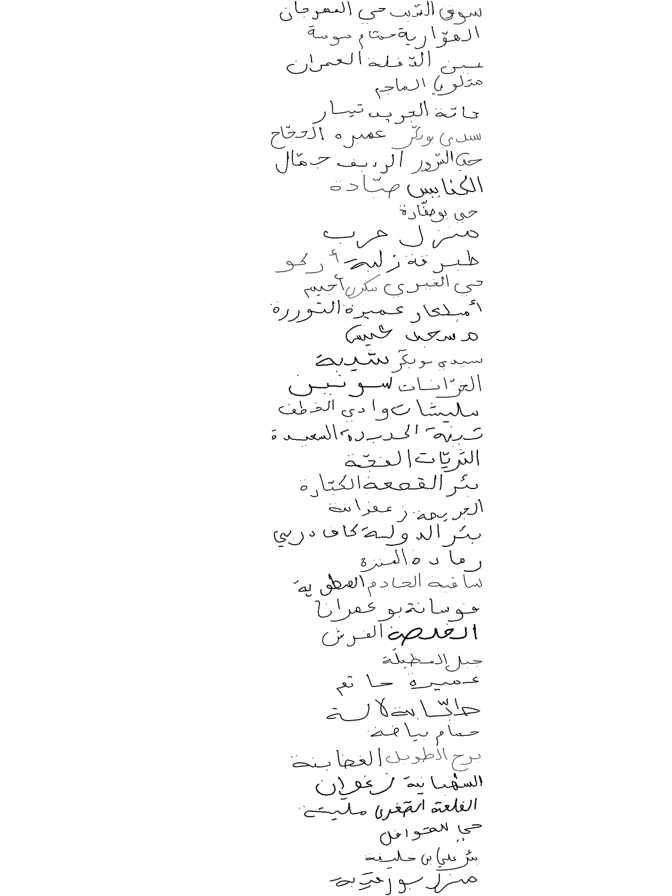 سوق الزيت حي المهرجان
الهوارية حمام سوسة
عين الدفلة العمران
متلوي الماجم
حامة الجريد تيسار
سيدي بوبكر عميرة الحجاج
حي الزهور الرديف جمال
الكنايس صيادة
حي بوصفارة
منزل حرب
طبرقة زلبة أركو
حي الخبزي سكرين أجيم
أميلكار عميرة التوررة
مسجد عيسى
سيدي بوبكر شيبة
الخزانات سونين
مليشات وادي الخطف
تبينة الجديدة السعيدة
الثريات الفجة
بئر القصعة الكبارة
الجريصة زعفرانة
بئر الدولة كاف دربي
رمادة المنزة
ساقية الخادم الصطورية
فوسانة بوعمران
القلصة الفرش
جبل المطيلة
عميرة حاتم
لالة
حمام بياضة
برج الطويل الغضابنة
السلمانية زغوان
القلعة الصغرى مليتة
حي القوافل
بئر علي بن خليفة
منزل بوزيان